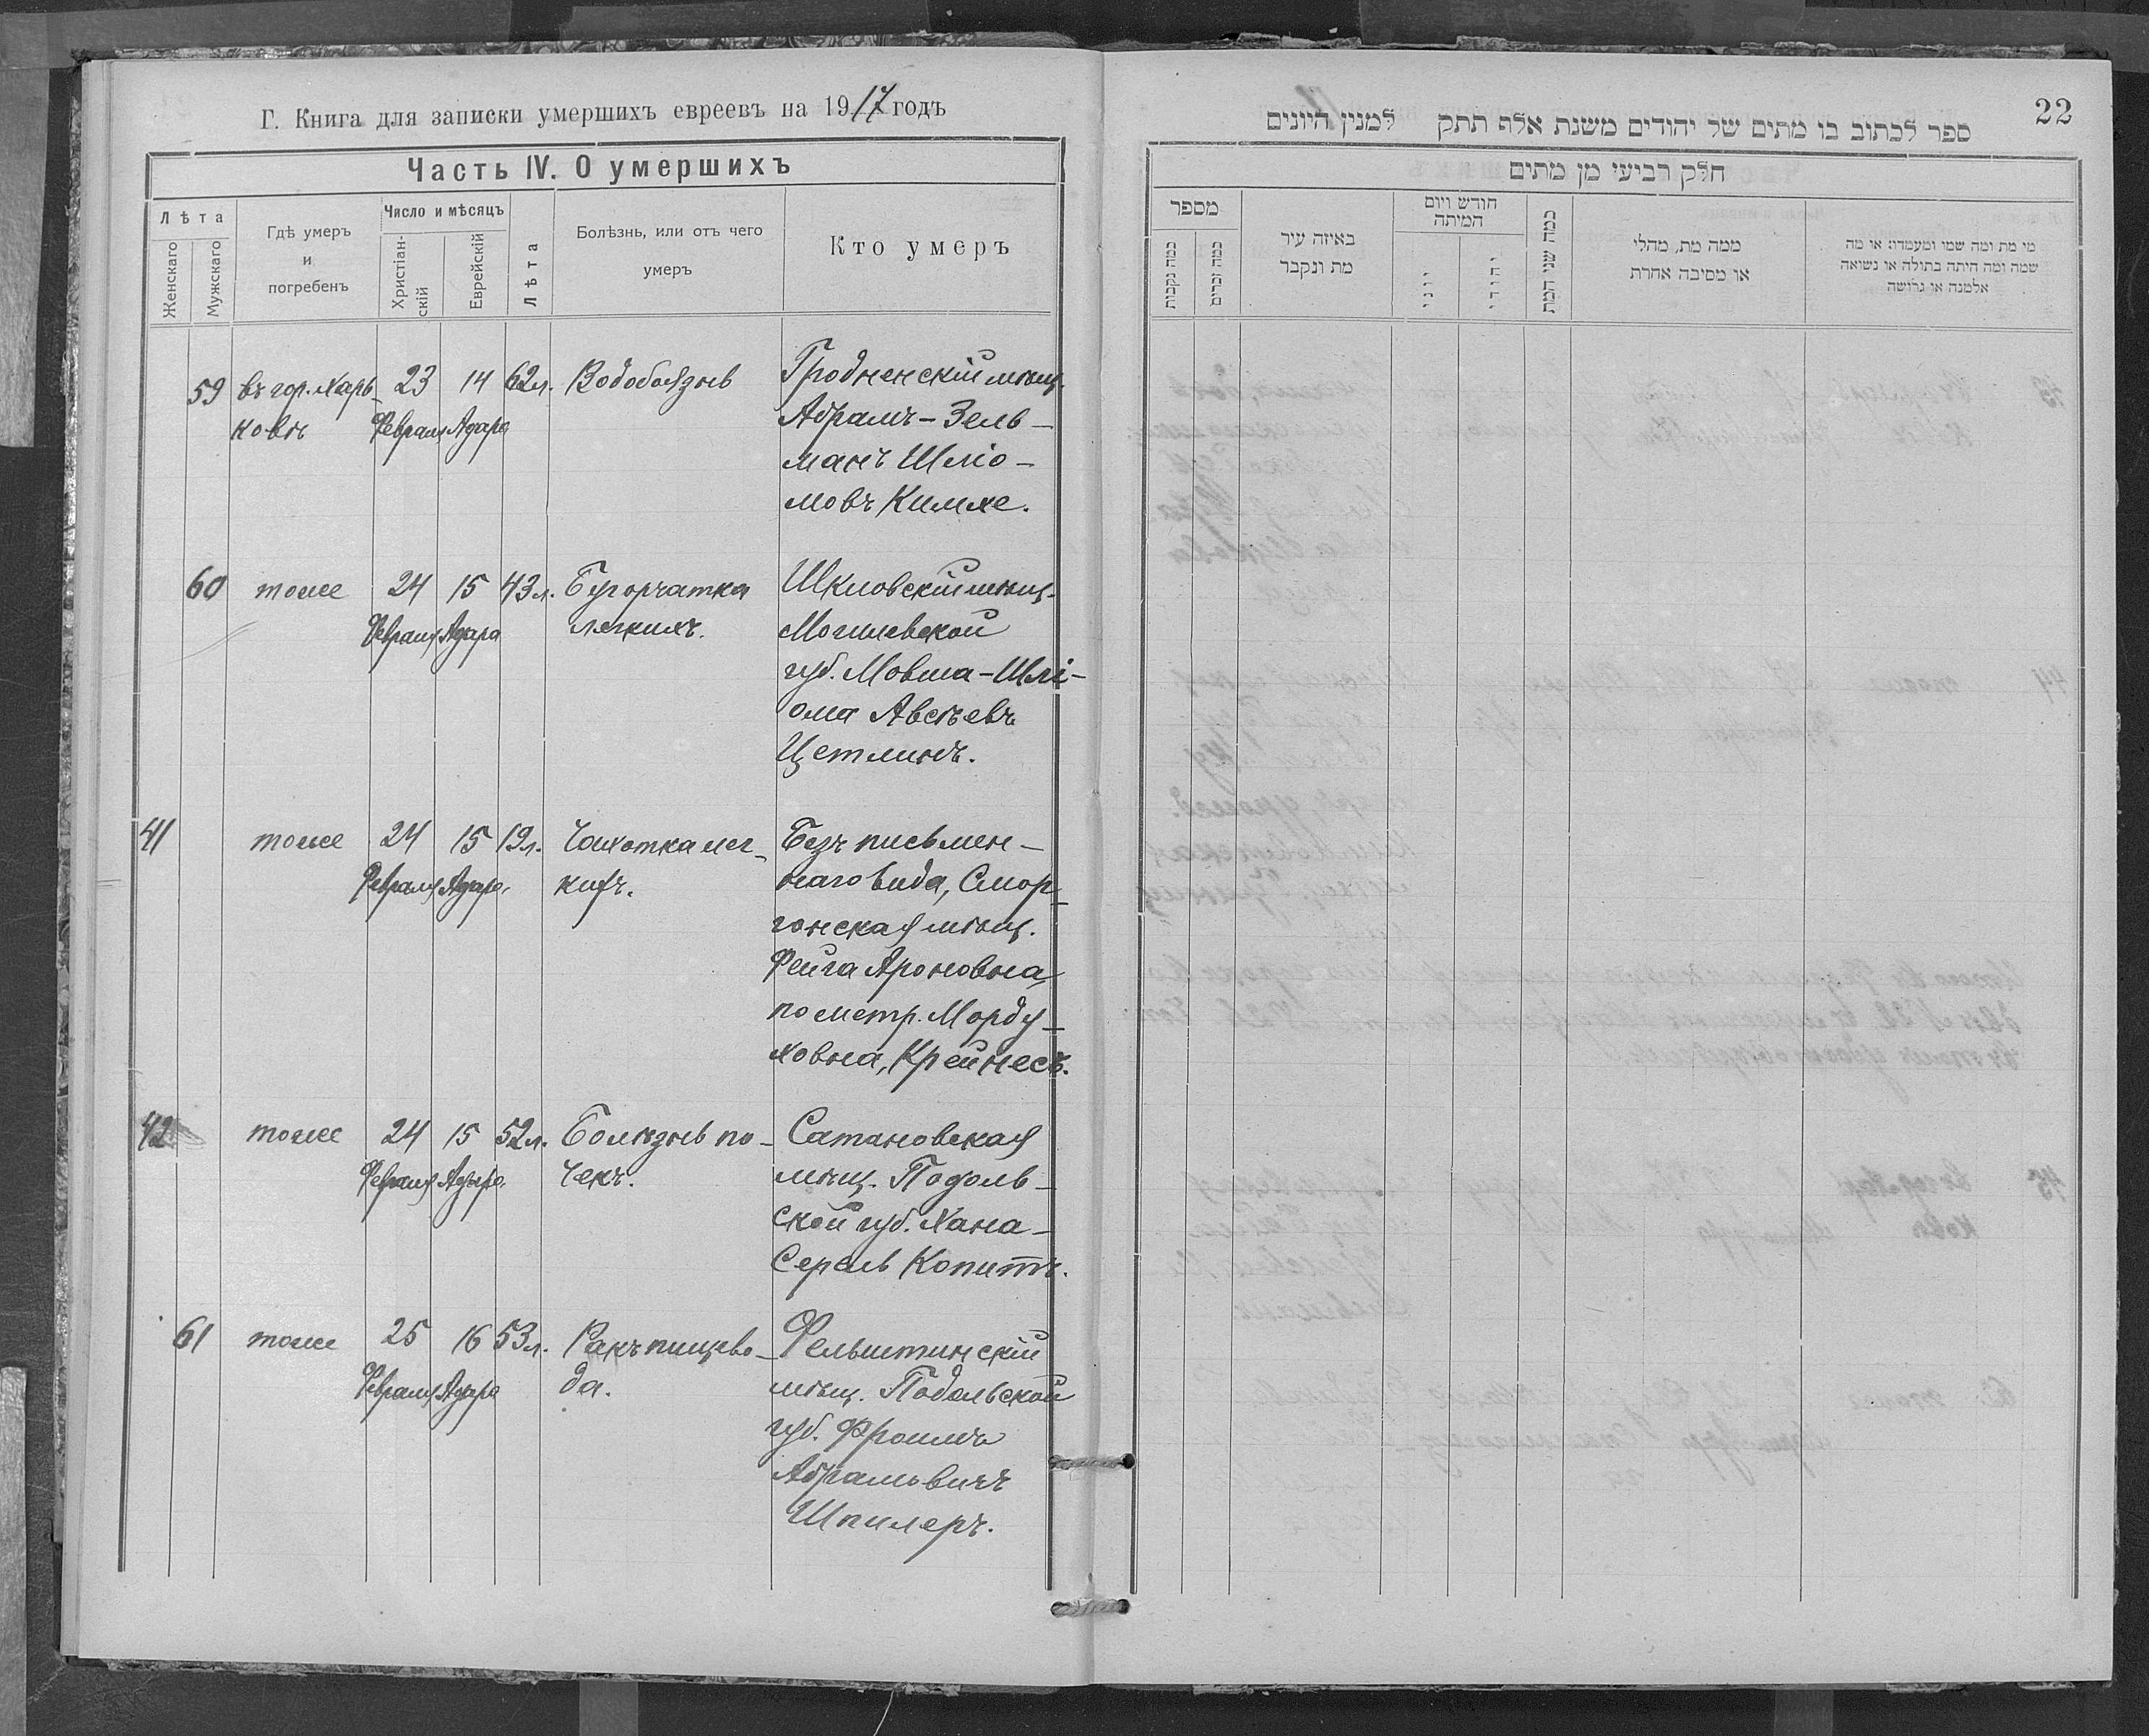 Г. Книга для записки умершихъ евреевъ на 1917 годъ
Часть IV. О умершихъ
Лѣта
Женскаго
Мужскаго
Гдѣ умеръ
и
погребенъ
Число и мѣсяцъ
Христіан-
скій
Еврейскій
Лѣта
Болѣзнь, или отъ чего
умеръ
Кто умеръ
59 въ гор. Харь- 23 14 62 л. Водобоязнь Гродненскій мѣщ.
ковѣ Февраля Адара Абрамъ-Зель-
манъ Шліо-
мовъ Кимхе.
60 тоже 24 15 43 л. Бугорчатка Шкловскій мѣщ.
Февраля Адара легкихъ. Могилевской
губ. Мовша-Шлі-
ома Авсѣевъ
Цетлинъ.
41 тоже 24 15 19 л. Чахотка лег- Безъ письмен-
Февраля Адара кихъ. наго вида, Смор-
гонская мѣщ.
Фейга Ароновна,
по метр. Морду-
ховна, Крейнесъ.
42 тоже 24 15 52 л. Болѣзнь по- Сатановская
Февраля Адара чекъ. мѣщ. Подоль-
ской губ. Хана-
Серель Копитъ.
61 тоже 25 16 53 л. Ракъ пищево- Фельштинскій
Февраля Адара да. мѣщ. Подольской
губ. Фроимъ
Абрамовичъ
Шпилеръ.
22
ספר לכתוב בו מתים של יהודים משנת אלף תתק למנין היונים
חלק רביעי מן מתים
מספר
כמה נקבות
כמה זכרים
באיזה עיר
מת ונקבר
חודש ויום
המיתה
יוני
יהודי
כמה שני המת
ממה מת, מחלי
או מסיבה אחרת
מי מת ומה שמו ומעמדו; או מה
שמה ומה היתה בתולה או נשואה
אלמנה או גרושה